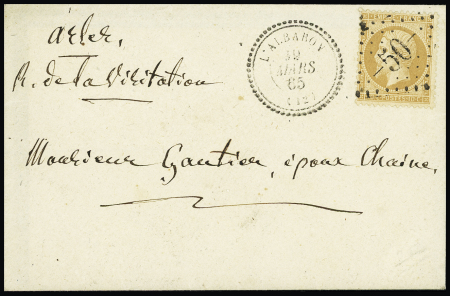 arles,
R. de la Visitation
L'ALBARON
12
MARS
65
(12)
50
Monsieur Gautier, époux Chaine.